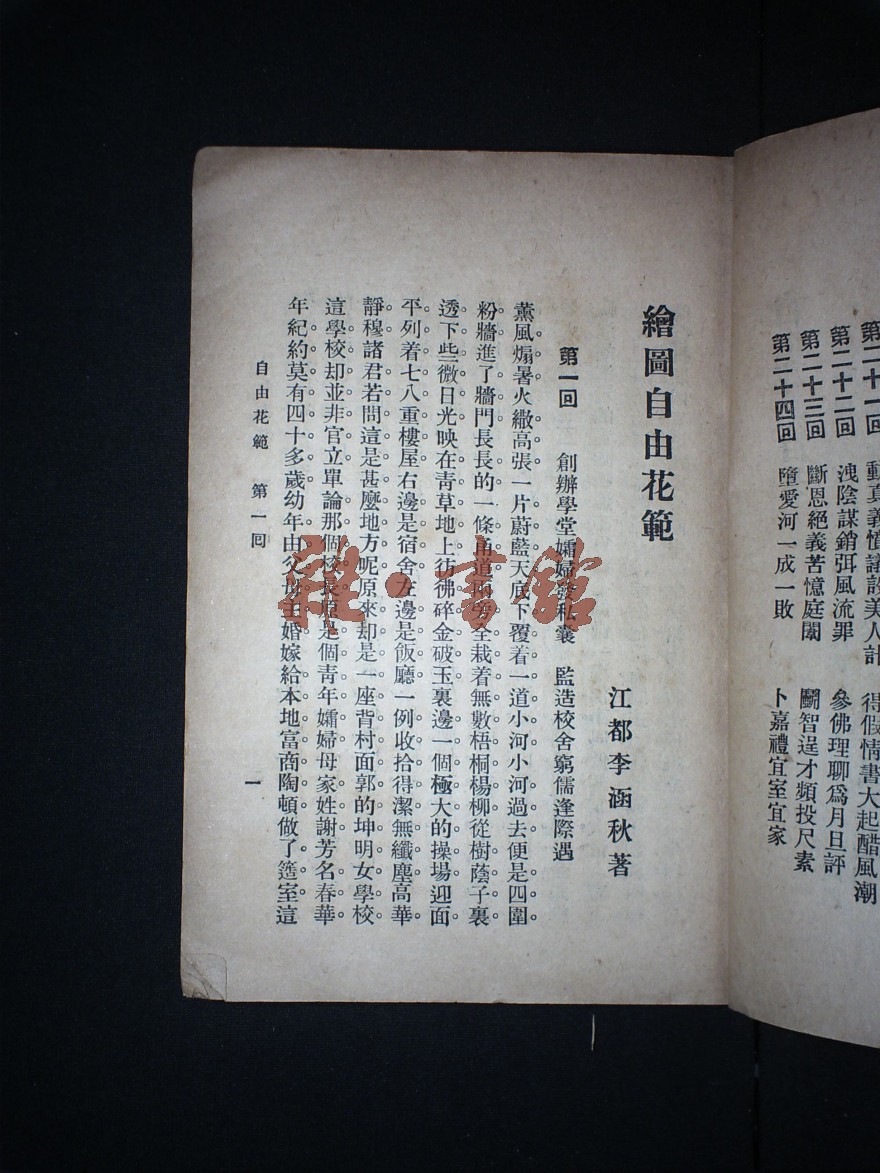 第二十一回　動真義憤議設美人計　得假情書大起醋風潮
第二十二回　洩陰謀銷弭風流罪　參佛理聊爲月旦評
第二十三回　斷恩絕義苦憶庭闈　鬭智逞才頻投尺素
第二十四回　墮愛河一成一敗　卜嘉禮宜室宜家
繪圖自由花範
江都李涵秋著
第一回　創辦學堂孀婦私囊　監造校舍窮儒逢際遇
薰風煽暑火繖高張一片蔚藍天底下覆着一道小河小河過去便是四圍
粉牆進了牆門長長的一條甬道兩旁全栽着無數梧桐楊柳從樹蔭子裏
透下些微日光映在靑草地上彷彿碎金破玉裏邊一個極大的操場迎面
平列着七八重樓屋右邊是宿舍左邊是飯廳一例收拾得潔無纖塵高華
靜穆諸君若問這是甚麼地方呢原來却是一座背村面郭的坤明女學校
這學校却並非官立單論那個校長原是個靑年孀婦母家姓謝芳名春華
年紀約莫有四十多歲幼年由父母主婚嫁給本地富商陶頓做了簉室這
自由花範　第一回
一
雅·書館